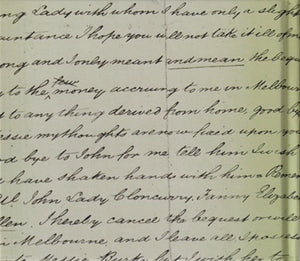 ng Lady with whom I have only a slight
uaintance I hope you will not take it ill of m
ong and I only meant and mean the beque
y to the money accruing to me in Melbour
t to any thing derived from home, good by
essie my thoughts are now fixed upon you
od bye to John for me tell him I wish
d have shaken hands with him & Remem
ll John Lady Cloncurry, Fanny Elizab
llen. I hereby cancel the bequest or will
in Melbourne and I leave all I possess
to